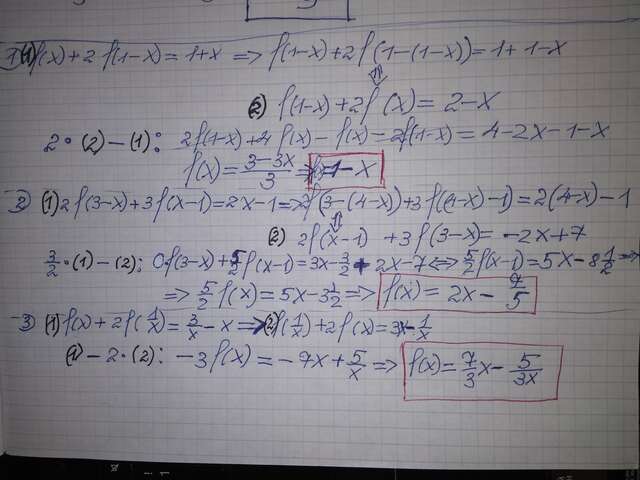 1) (1) f(x) + 2f(1-x) = 1+x => f(1-x) + 2f(1-(1-x)) = 1 + 1-x
⇕
(2) f(1-x) + 2f(x) = 2-x
2·(2)-(1): 2f(1-x) + 4f(x) - f(x) = 2f(1-x) = 4-2x-1-x
f(x) = (3-3x)/3 => 1-x
2) (1) 2f(3-x) + 3f(x-1) = 2x-1 => 2f(3-(4-x)) + 3f((4-x)-1) = 2(4-x)-1
⇕
(2) 2f(x-1) + 3f(3-x) = -2x+7
3/2·(1)-(2): 0f(3-x) + 5/2 f(x-1) = 3x - 3/2 + 2x-7 <=> 5/2 f(x-1) = 5x-8 1/2 =>
=> 5/2 f(x) = 5x-3 1/2 => f(x) = 2x - 7/5
3) (1) f(x) + 2f(1/x) = 3/x - x => (2) f(1/x) + 2f(x) = 3x - 1/x
(1)-2·(2): -3f(x) = -7x + 5/x => f(x) = 7/3 x - 5/3x